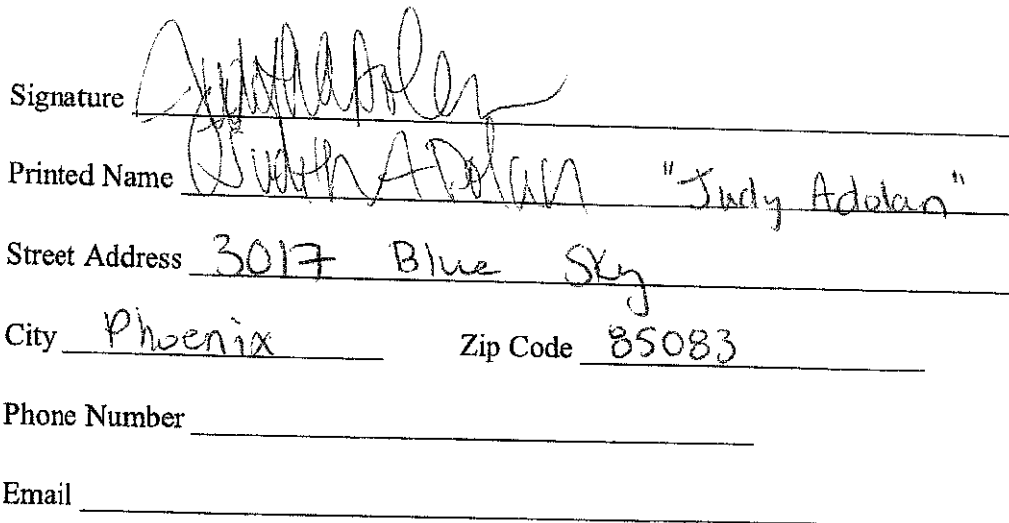 Signature
Printed Name Judith A Dolan "Judy Adolan"
Street Address 3017 Blue Sky
City Phoenix Zip Code 85083
Phone Number
Email